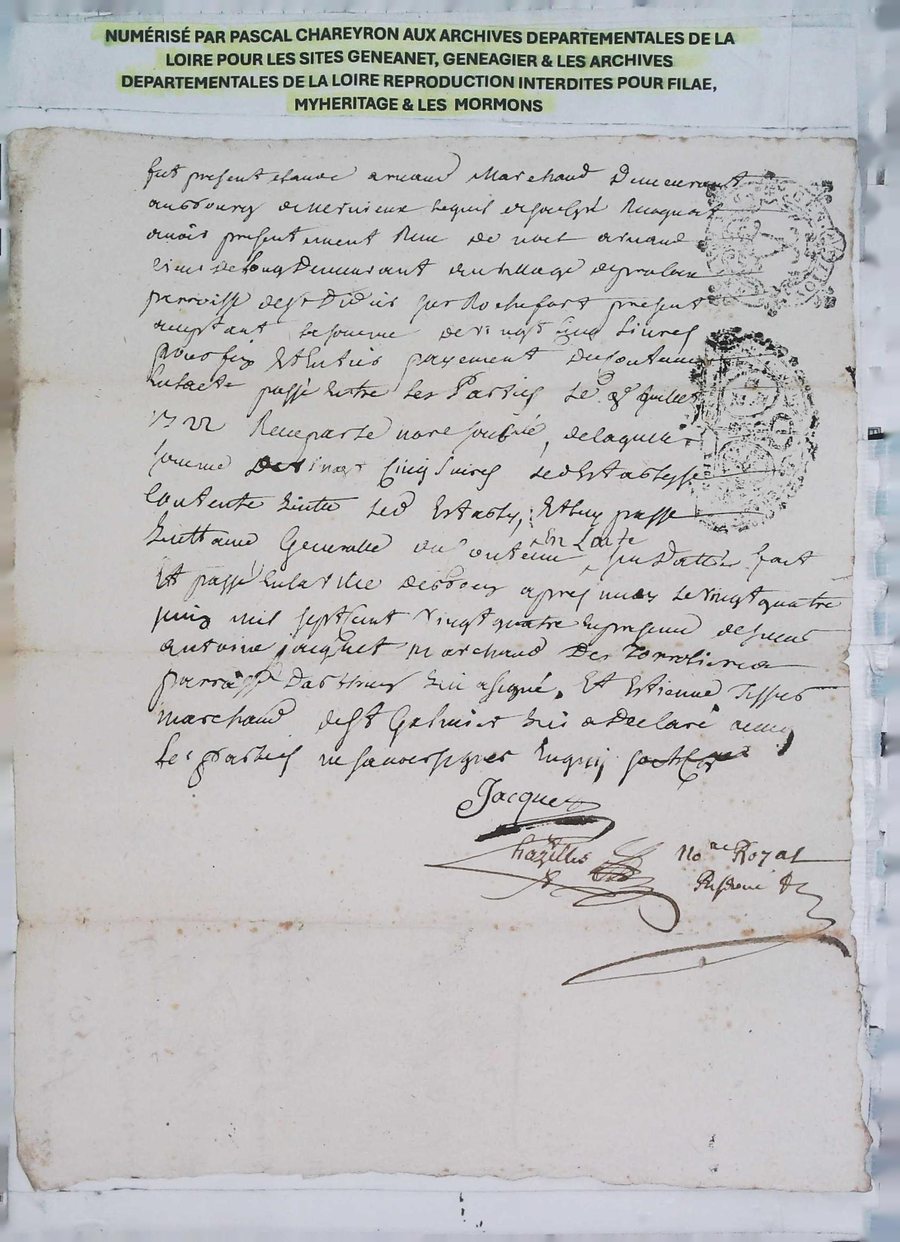 NUMÉRISÉ PAR PASCAL CHAREYRON AUX ARCHIVES DEPARTEMENTALES DE LA
LOIRE POUR LES SITES GENEANET, GENEAGIER & LES ARCHIVES
DEPARTEMENTALES DE LA LOIRE REPRODUCTION INTERDITES POUR FILAE,
MYHERITAGE & LES MORMONS
fut present claude arnaud Marchand Demeurant
aubourg lequel de Recognait
avoir presentement Reçu de noel arnaud
Demeurant au village
parroisse de st Didier sur Rochefort present
acceptant la somme de vingt cinq livres
pour fix et entier payement du contenu
en lacte passé entre Les Parties Le 8e Juillet
1722 Receu par le nore soubsné, de laquelle
somme de vingt cinq livres led Estably se
contente quitte led Estably, et luy passe
quittance Generalle du contenu en l'acte sus datté fait
Et passé en la ville de boen apres midy le vingt quatre
juin mil sept cent vingt quatre en presence de sieurs
antoine jacquet marchand
parroisse darthun qui a signé, Et Estienne
marchand de st Galmier qui a Declaré
Les parties ne sçavoir signer enquis
Jacquet
Chazelles No re Royal